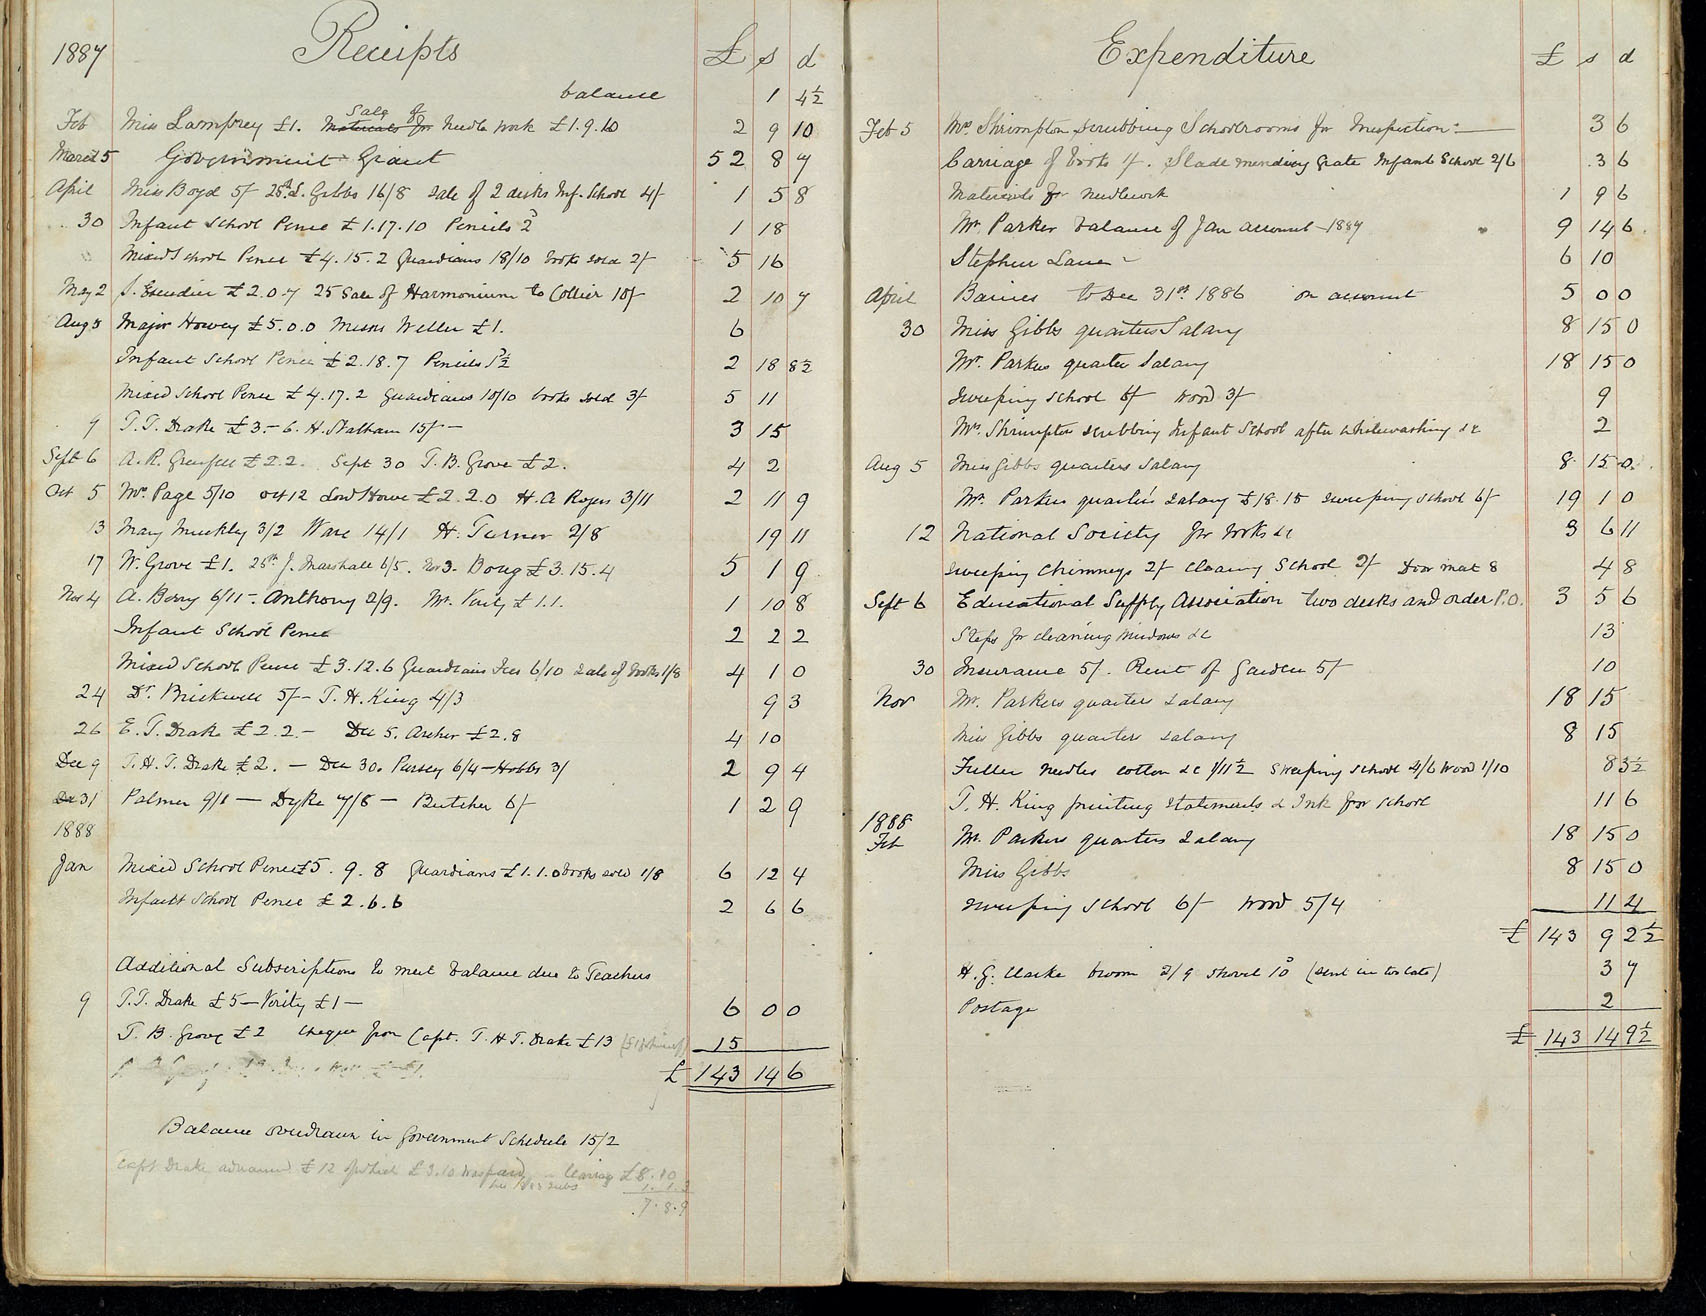 1887 Receipts £ s d
balance 1 4½
Sale of
Feb Miss Lamprey £1. Materials for Needle work £1.9.10 2 9 10
March 5 Government Grant 52 8 7
April Miss Boyd 5/ 25th S. Gibbs 16/8 Sale of 2 desks Inf. School 4/ 1 5 8
30 Infant School Pence £1.17.10 Pencils 2d 1 18
Mixed School Pence £4.15.2 Guardians 18/10 books sold 2/ 5 16
May 2 £2.0.7 25 Sale of Harmonium to Collier 10/ 2 10 7
Aug 5 Major Howey £5.0.0 Weller £1. 6
Infant School Pence £2.18.7 Pencils 1½d 2 18 8½
Mixed School Pence £4.17.2 Guardians 10/10 books sold 3/ 5 11
9 T.T. Drake £3.- 6. H. Statham 15/- 3 15
Sept 6 A.R. Grenfell £2.2. Sept 30 T.B. Grove £2. 4 2
Oct 5 Mrs Page 5/10 Oct 12 Lord Howe £2.2.0 H.A Rogers 3/11 2 11 9
13 Mary Muckley 3/2 Ware 14/1 H. Turner 2/8 19 11
17 W. Grove £1. 25th J. Marshall 6/5. Nov 3. Boug £3.15.4 5 1 9
Nov 4 A. Berry 6/11 - Anthony 2/9. Mr. Verity £1.1. 1 10 8
Infant School Pence 2 2 2
Mixed School Pence £3.12.6 Guardians Fees 6/10 Sale of books 1/8 4 1 0
24 Dr. Brickwell 5/- T.H. King 4/3 9 3
26 E.T. Drake £2.2.- Dec 5. Archer £2.8 4 10
Dec 9 T.H.T. Drake £2. - Dec 30. Pursey 6/4 - Hobbs 3/ 2 9 4
Dec 31 Palmer 9/1 - Dyke 7/8 - Butcher 6/ 1 2 9
1888
Jan Mixed School Pence £5.9.8 Guardians £1.1.0 books sold 1/8 6 12 4
Infant School Pence £2.6.6 2 6 6
Additional Subscriptions to meet balance due to Teachers
9 T.T. Drake £5 - Verity £1 - 6 0 0
T.B. Grove £2 cheque from Capt. T.H.T. Drake £13 15
£ 143 14 6
Balance overdrawn in Government Schedule 15/2
Capt Drake advanced £12 of which £3.10 was paid leaving £8.10
7.8.9
Expenditure £ s d
Feb 5 Mrs Shrimpton scrubbing Schoolrooms for Inspection: 3 6
Carriage of books 1/. Slade mending grate Infant School 2/6 3 6
Materials for needlework 1 9 6
Mr. Parker balance of Jan account 1887 9 14 6
Stephen Lane 6 10
April Baines to Dec 31st 1886 on account 5 0 0
30 Miss Gibbs quarters Salary 8 15 0
Mr. Parkers quarter Salary 18 15 0
Sweeping school 6/ wood 3/ 9
Mrs. Shrimpton scrubbing Infant School after whitewashing &c 2
Aug 5 Miss Gibbs quarters Salary 8 15 0
Mr. Parkers quarters Salary £18.15 sweeping school 6/ 19 1 0
12 National Society for books &c 3 6 11
Sweeping chimneys 2/ cleaning School 2/ Door mat 8 4 8
Sept 6 Educational Supply Association two desks and order P.O. 3 5 6
Steps for cleaning windows &c 13
30 Insurance 5/. Rent of Garden 5/ 10
Nov Mr. Parkers quarters salary 18 15
Miss Gibbs quarters salary 8 15
Fuller needles cotton &c 1/11½ Sweeping school 4/6 Wood 1/10 8 3½
T.H. King printing statements & Ink for school 11 6
1888
Feb Mr. Parkers quarters Salary 18 15 0
Miss Gibbs 8 15 0
Sweeping school 6/ Wood 5/4 11 4
£ 143 9 2½
H.G. Clarke broom 2/9 shovel 10d (sent in too late) 3 7
Postage 2
£ 143 14 9½